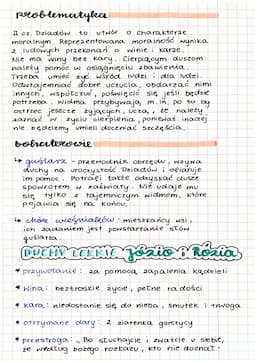 problematyka
II cz. Dziadów to utwór o charakterze
moralnym. Reprezentowana moralność wynika
z ludowych przekonań o winie i karze.
Nie ma winy bez kary. Cierpiącym duszom
należy pomóc w osiągnięciu zbawienia.
Trzeba umieć żyć wśród ludzi i dla ludzi.
Odwzajemniać dobre uczucia, obdarzać nimi
innych, współczuć, poświęcić się jeśli będzie
potrzeba. Widma przybywają m.in. po to by
ostrzec jeszcze żyjących, uczą, że należy
zaznać w życiu cierpienia, ponieważ inaczej
nie będziemy umieli doceniać szczęścia.
bohaterowie
↳ guślarz - przewodnik obrzędu, wzywa
duchy na uroczystość Dziadów i ofiaruje
im pomoc. Potrafi także odsyłać dusze
spowrotem w zaświaty. Nie udaje mu
się tylko z tajemniczym widmem, które
pojawia się na końcu.
↳ chór wieśniaków - mieszkańcy wsi,
ich zadaniem jest powtarzanie słów
guślarza.
DUCHY LEKKIE Józio i Rózia
* przywołanie: za pomocą zapalenia kądzieli
* wina: beztroskie życie, pełne radości
* kara: niedostanie się do nieba, smutek i trwoga
* otrzymane dary: 2 ziarenka gorczycy
* przestroga: „Bo słuchajcie i zważcie u siebie,
że według bożego rozkazu, kto nie doznał